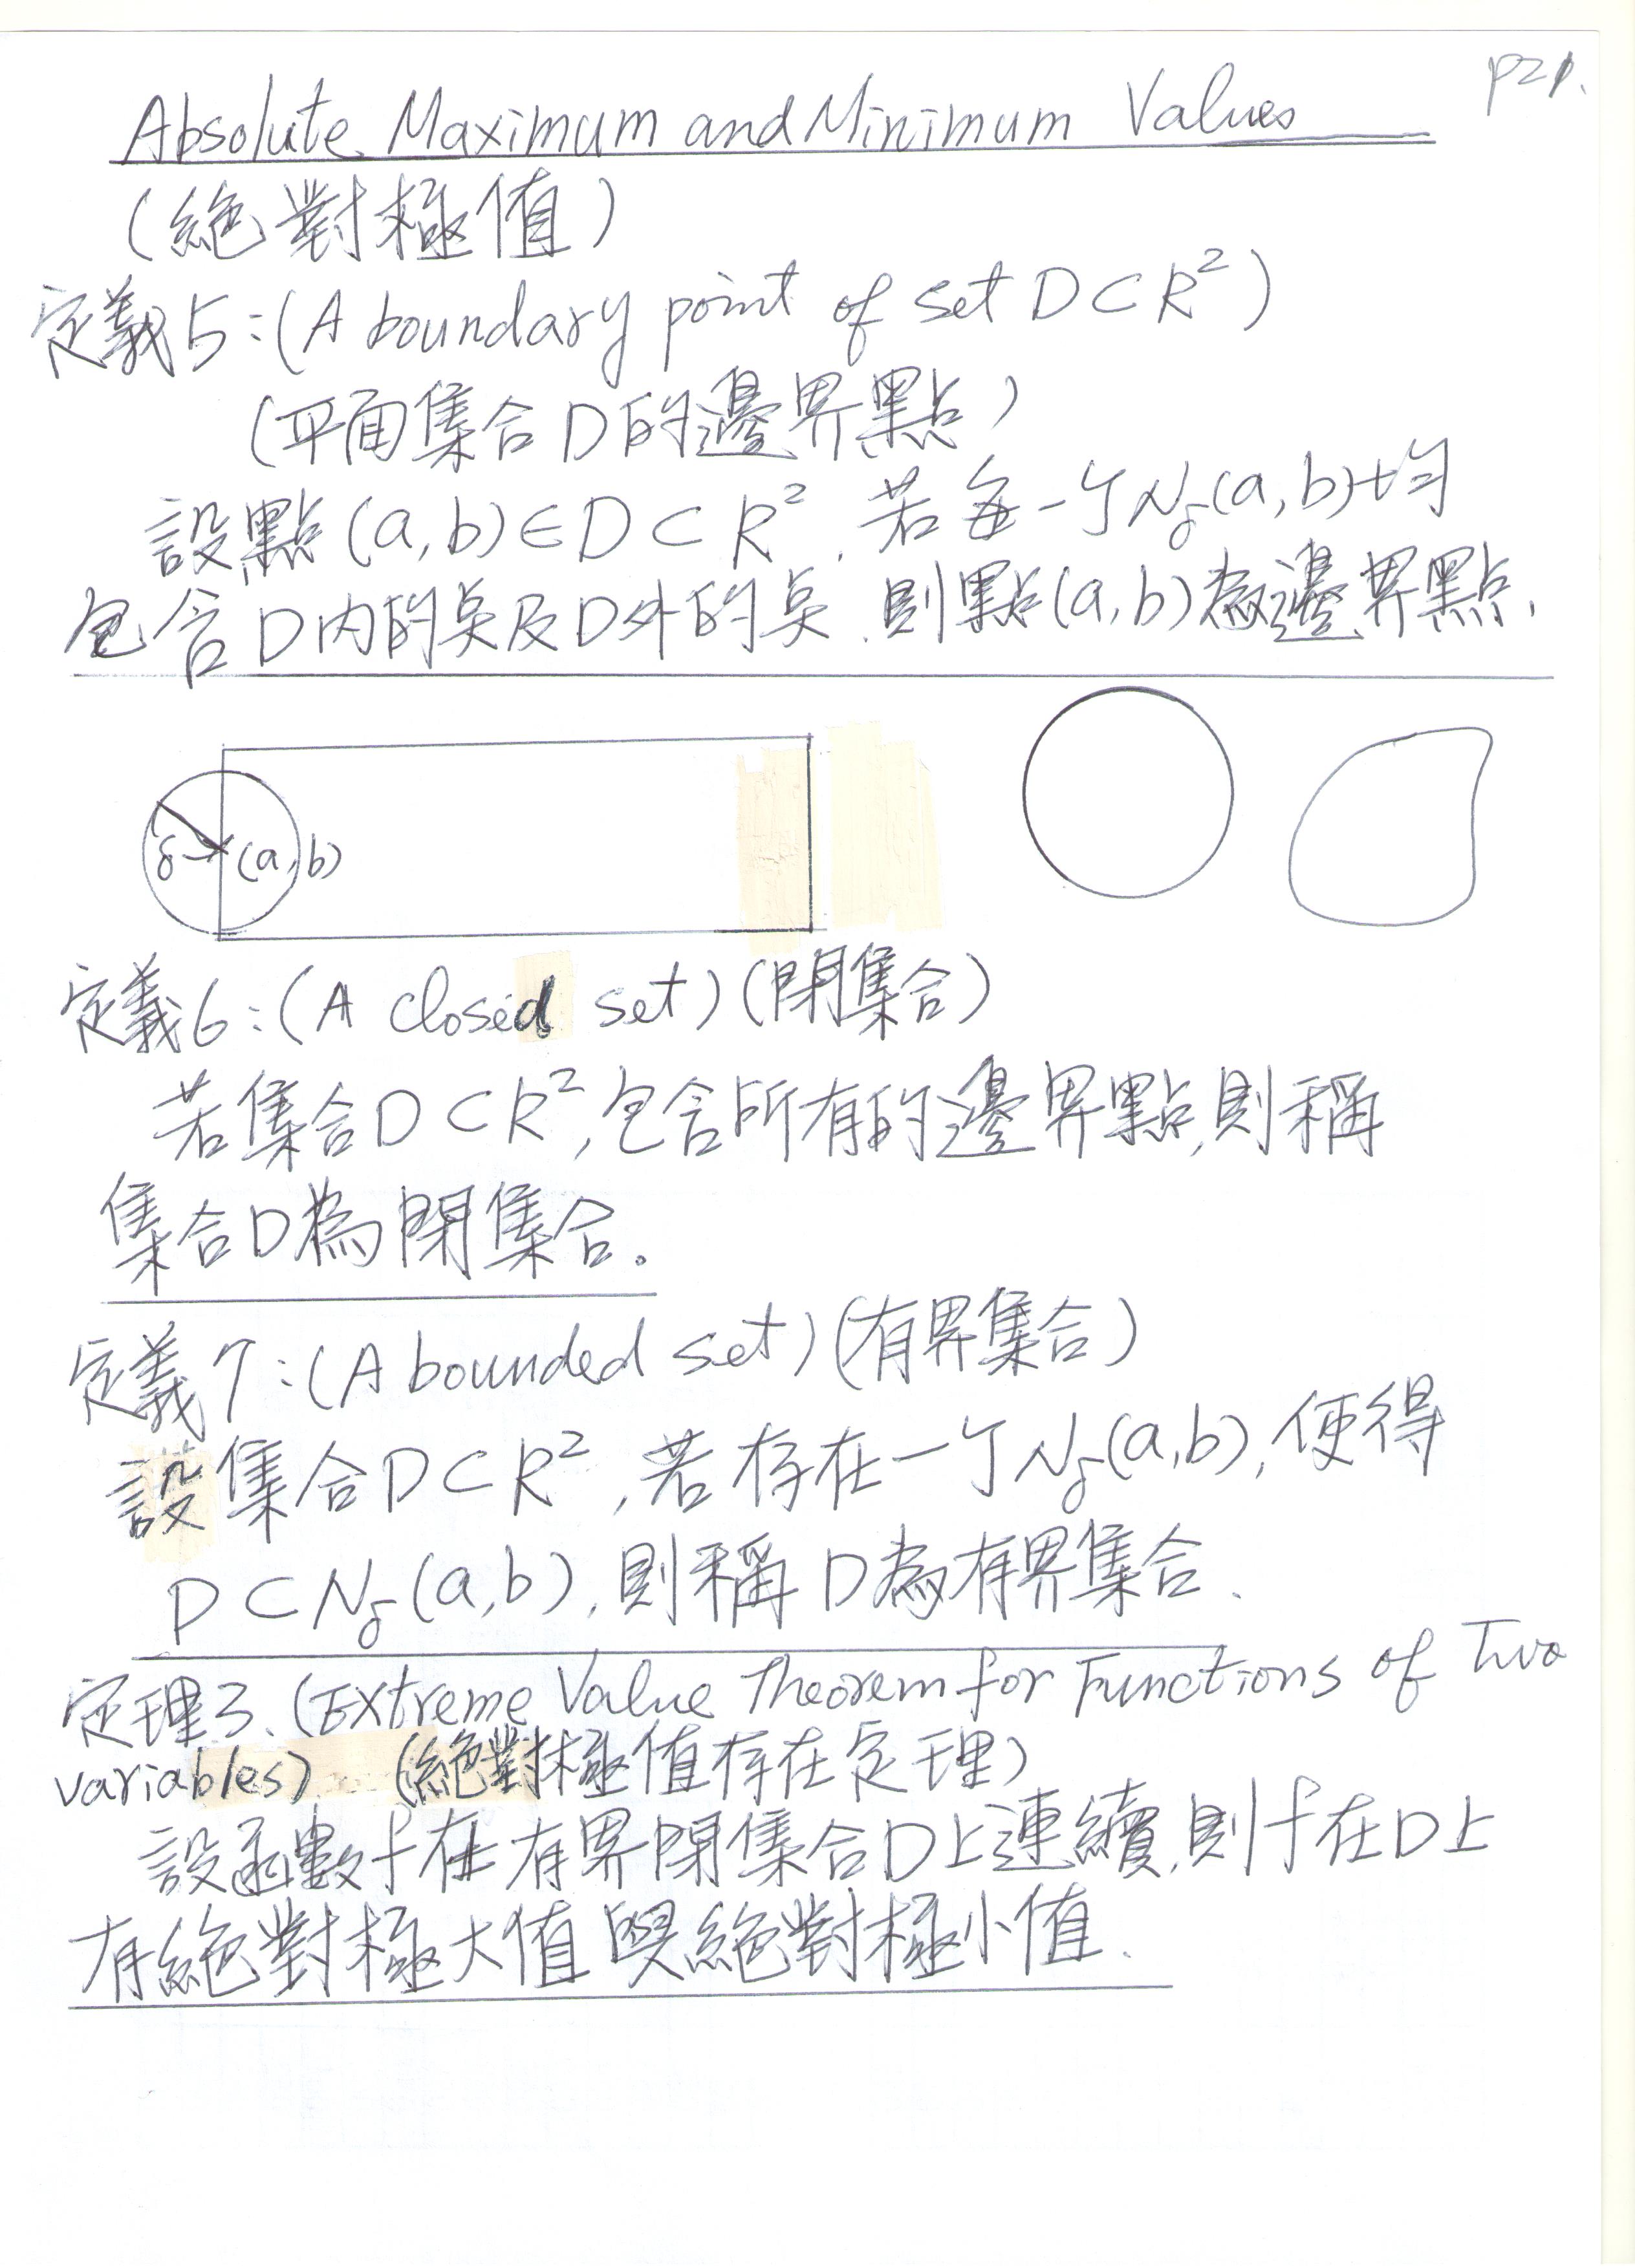 p21.
Absolute Maximum and Minimum Values
(絕對極值)
定義5:(A boundary point of set D⊂R²)
(平面集合D的邊界點)
設點(a,b)∈D⊂R², 若每一个N_δ(a,b)均
包含D内的点及D外的点, 則點(a,b)為邊界點.
δ (a,b)
定義6:(A closed set)(閉集合)
若集合D⊂R², 包含所有的邊界點, 則稱
集合D為閉集合。
定義7:(A bounded set)(有界集合)
設集合D⊂R², 若存在一个N_δ(a,b), 使得
D⊂N_δ(a,b), 則稱D為有界集合.
定理3.(Extreme Value Theorem for Functions of Two
variables) (絕對極值存在定理)
設函數f在有界閉集合D上連續, 則f在D上
有絕對極大值與絕對極小值.